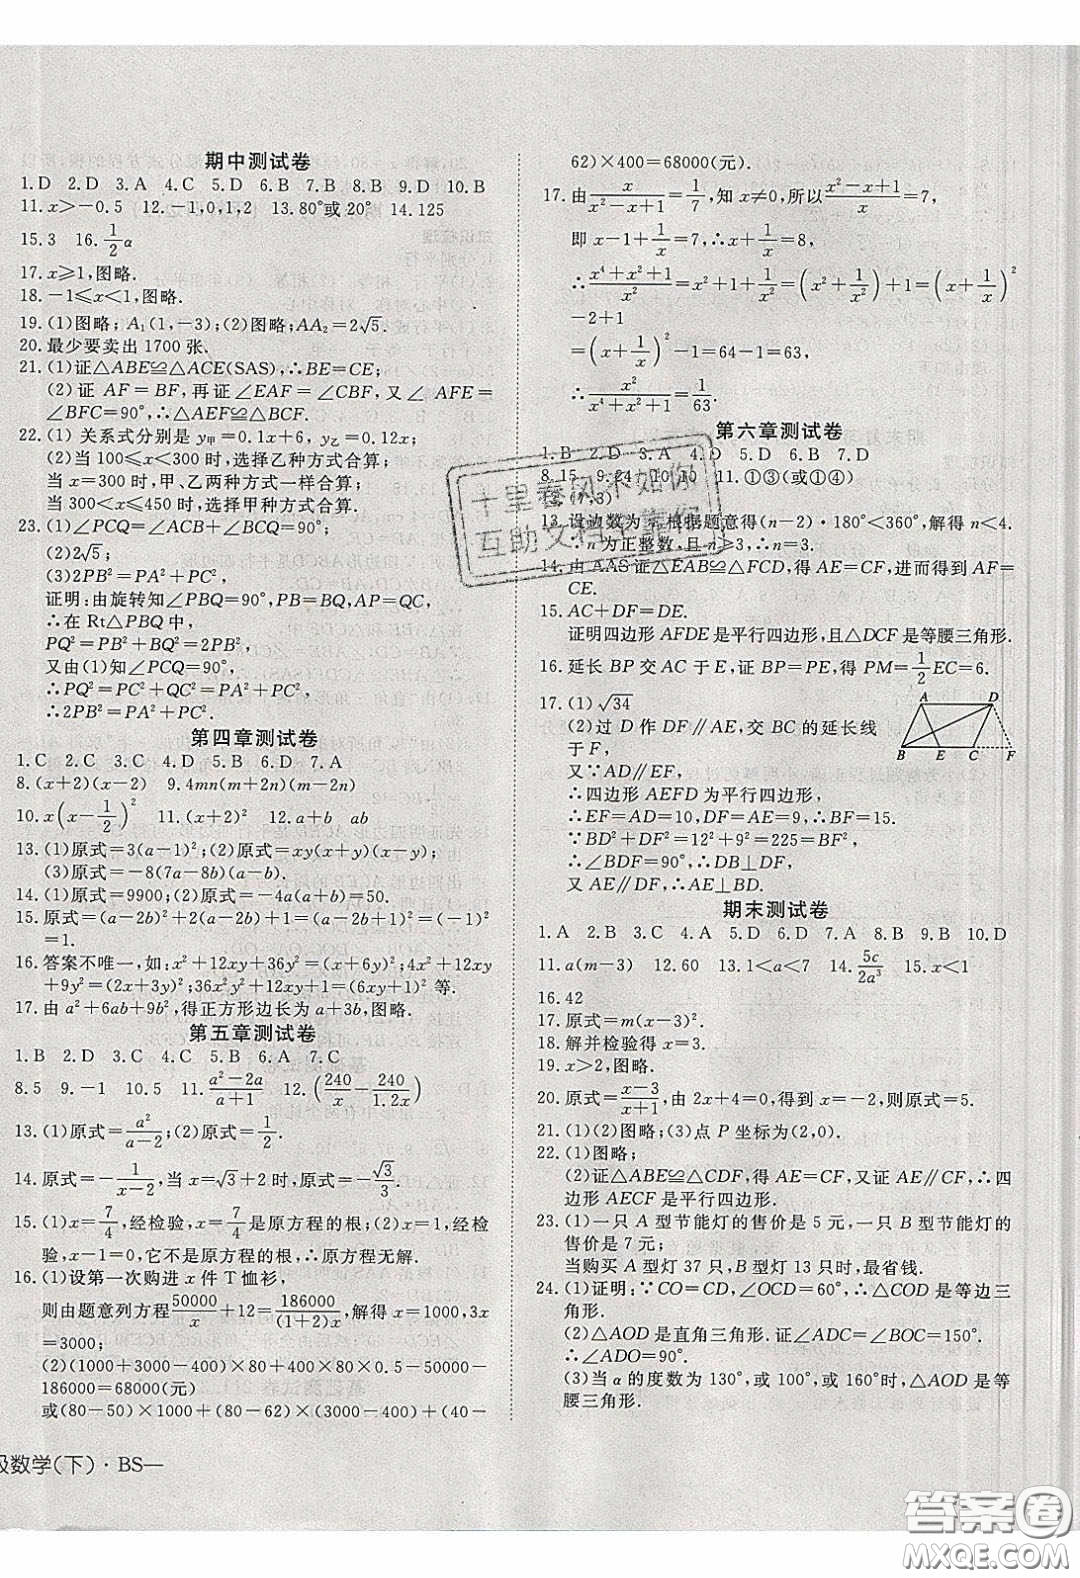 期中测试卷
1.D 2.D 3.A 4.C 5.D 6.B 7.B 8.B 9.D 10.B
11.x>-0.5 12.-1,0,1,2 13.80°或20° 14.125
15.3 16.1/2 a
17.x≥1,图略.
18.-1≤x<1,图略.
19.(1)图略;A₁(1,-3);(2)图略;AA₂=2√5.
20.最少要卖出1700张.
21.(1)证△ABE≌△ACE(SAS),∴BE=CE;
(2)证AF=BF,再证∠EAF=∠CBF,又∠AFE=
∠BFC=90°,∴△AEF≌△BCF.
22.(1)关系式分别是y甲=0.1x+6,y乙=0.12x;
(2)当100≤x<300时,选择乙种方式合算;
当x=300时,甲、乙两种方式一样合算;
当300<x≤450时,选择甲种方式合算.
23.(1)∠PCQ=∠ACB+∠BCQ=90°.
(2)2√5;
(3)2PB²=PA²+PC²,
证明:由旋转知∠PBQ=90°,PB=BQ,AP=QC,
∴在Rt△PBQ中,
PQ²=PB²+BQ²=2PB²,
又由(1)知∠PCQ=90°,
∴PQ²=PC²+QC²=PA²+PC²,
∴2PB²=PA²+PC².
第四章测试卷
1.C 2.C 3.C 4.D 5.B 6.D 7.A
8.(x+2)(x-2) 9.4mn(m+2n)(m-2n)
10.x(x-1/2)² 11.(x+2)² 12.a+b ab
13.(1)原式=3(a-1)²;(2)原式=xy(x+y)(x-y);
(3)原式=-8(7a-8b)(a-b).
14.(1)原式=9900;(2)原式=-4a(a+b)=50.
15.原式=(a-2b)²+2(a-2b)+1=(a-2b+1)²=(-1)²
=1.
16.答案不唯一,如:x²+12xy+36y²=(x+6y)²;4x²+12xy
+9y²=(2x+3y)²;36x²y²+12xy+1=(6xy+1)².
17.由a²+6ab+9b²,得正方形边长为a+3b,图略.
第五章测试卷
1.B 2.D 3.C 4.C 5.B 6.A 7.C
8.5 9.-1 10.5 11.(a²-2a)/(a+1) 12.(240/x-240/1.2x)
13.(1)原式=a²/(a-2);(2)原式=1/2.
14.原式=-1/(x-2),当x=√3+2时,原式=-√3/3.
15.(1)x=7/4,经检验,x=7/4是原方程的根;(2)x=1,经检
验,x-1=0,它不是原方程的根,∴原方程无解.
16.(1)设第一次购进x件T恤衫,
则由题意列方程50000/x+12=186000/(1+2)x,解得x=1000,3x
=3000;
(2)(1000+3000-400)×80+400×80×0.5-50000-
186000=68000(元)
或(80-50)×1000+(80-62)×(3000-400)+(40-
级数学(下)·BS—
62)×400=68000(元).
17.由x/(x²-x+1)=1/7,知x≠0,所以(x²-x+1)/x=7,
即x-1+1/x=7,x+1/x=8,
∴(x⁴+x²+1)/x²=x²+1+1/x²=(x²+1/x²)+1=(x+1/x)²
-2+1
=(x+1/x)²-1=64-1=63,
∴x²/(x⁴+x²+1)=1/63.
第六章测试卷
1.B 2.D 3.A 4.D 5.D 6.B 7.D
8.15 9.24 10.10 11.①③(或①④)
13.设边数为n,根据题意得(n-2)·180°<360°,解得n<4.
∴n为正整数,且n≥3,∴n=3.
14.由AAS证△EAB≌△FCD,得AE=CF,进而得到AF=
CE.
15.AC+DF=DE.
证明四边形AFDE是平行四边形,且△DCF是等腰三角形.
16.延长BP交AC于E,证BP=PE,得PM=1/2EC=6.
17.(1)√34
(2)过D作DF∥AE,交BC的延长线
于F,
又∵AD∥EF,
∴四边形AEFD为平行四边形,
∴EF=AD=10,DF=AE=9,∴BF=15.
∵BD²+DF²=12²+9²=225=BF²,
∴∠BDF=90°,∴BD⊥DF.
又AE∥DF,∴AE⊥BD.
A D
B E C F
期末测试卷
1.A 2.B 3.C 4.A 5.D 6.D 7.A 8.B 9.B 10.D
11.a(m-3) 12.60 13.1<a<7 14.5c/2a³ 15.x<1
16.42
17.原式=m(x-3)².
18.解并检验得x=3.
19.x>2,图略.
20.原式=(x-3)/(x+1),由2x+4=0,得到x=-2,则原式=5.
21.(1)(2)图略;(3)点P坐标为(2,0).
22.(1)图略;
(2)证△ABE≌△CDF,得AE=CF,又证AE∥CF,∴四
边形AECF是平行四边形.
23.(1)一只A型节能灯的售价是5元,一只B型节能灯的
售价是7元;
当购买A型灯37只,B型灯13只时,最省钱.
24.(1)证明:∵CO=CD,∠OCD=60°,∴△COD是等边三
角形.
(2)△AOD是直角三角形.证∠ADC=∠BOC=150°,
∴∠ADO=90°.
(3)当α的度数为130°,或100°,或160°时,△AOD是等
腰三角形.
十里春风不如你
互助文档
答案圈
MXQE.COM